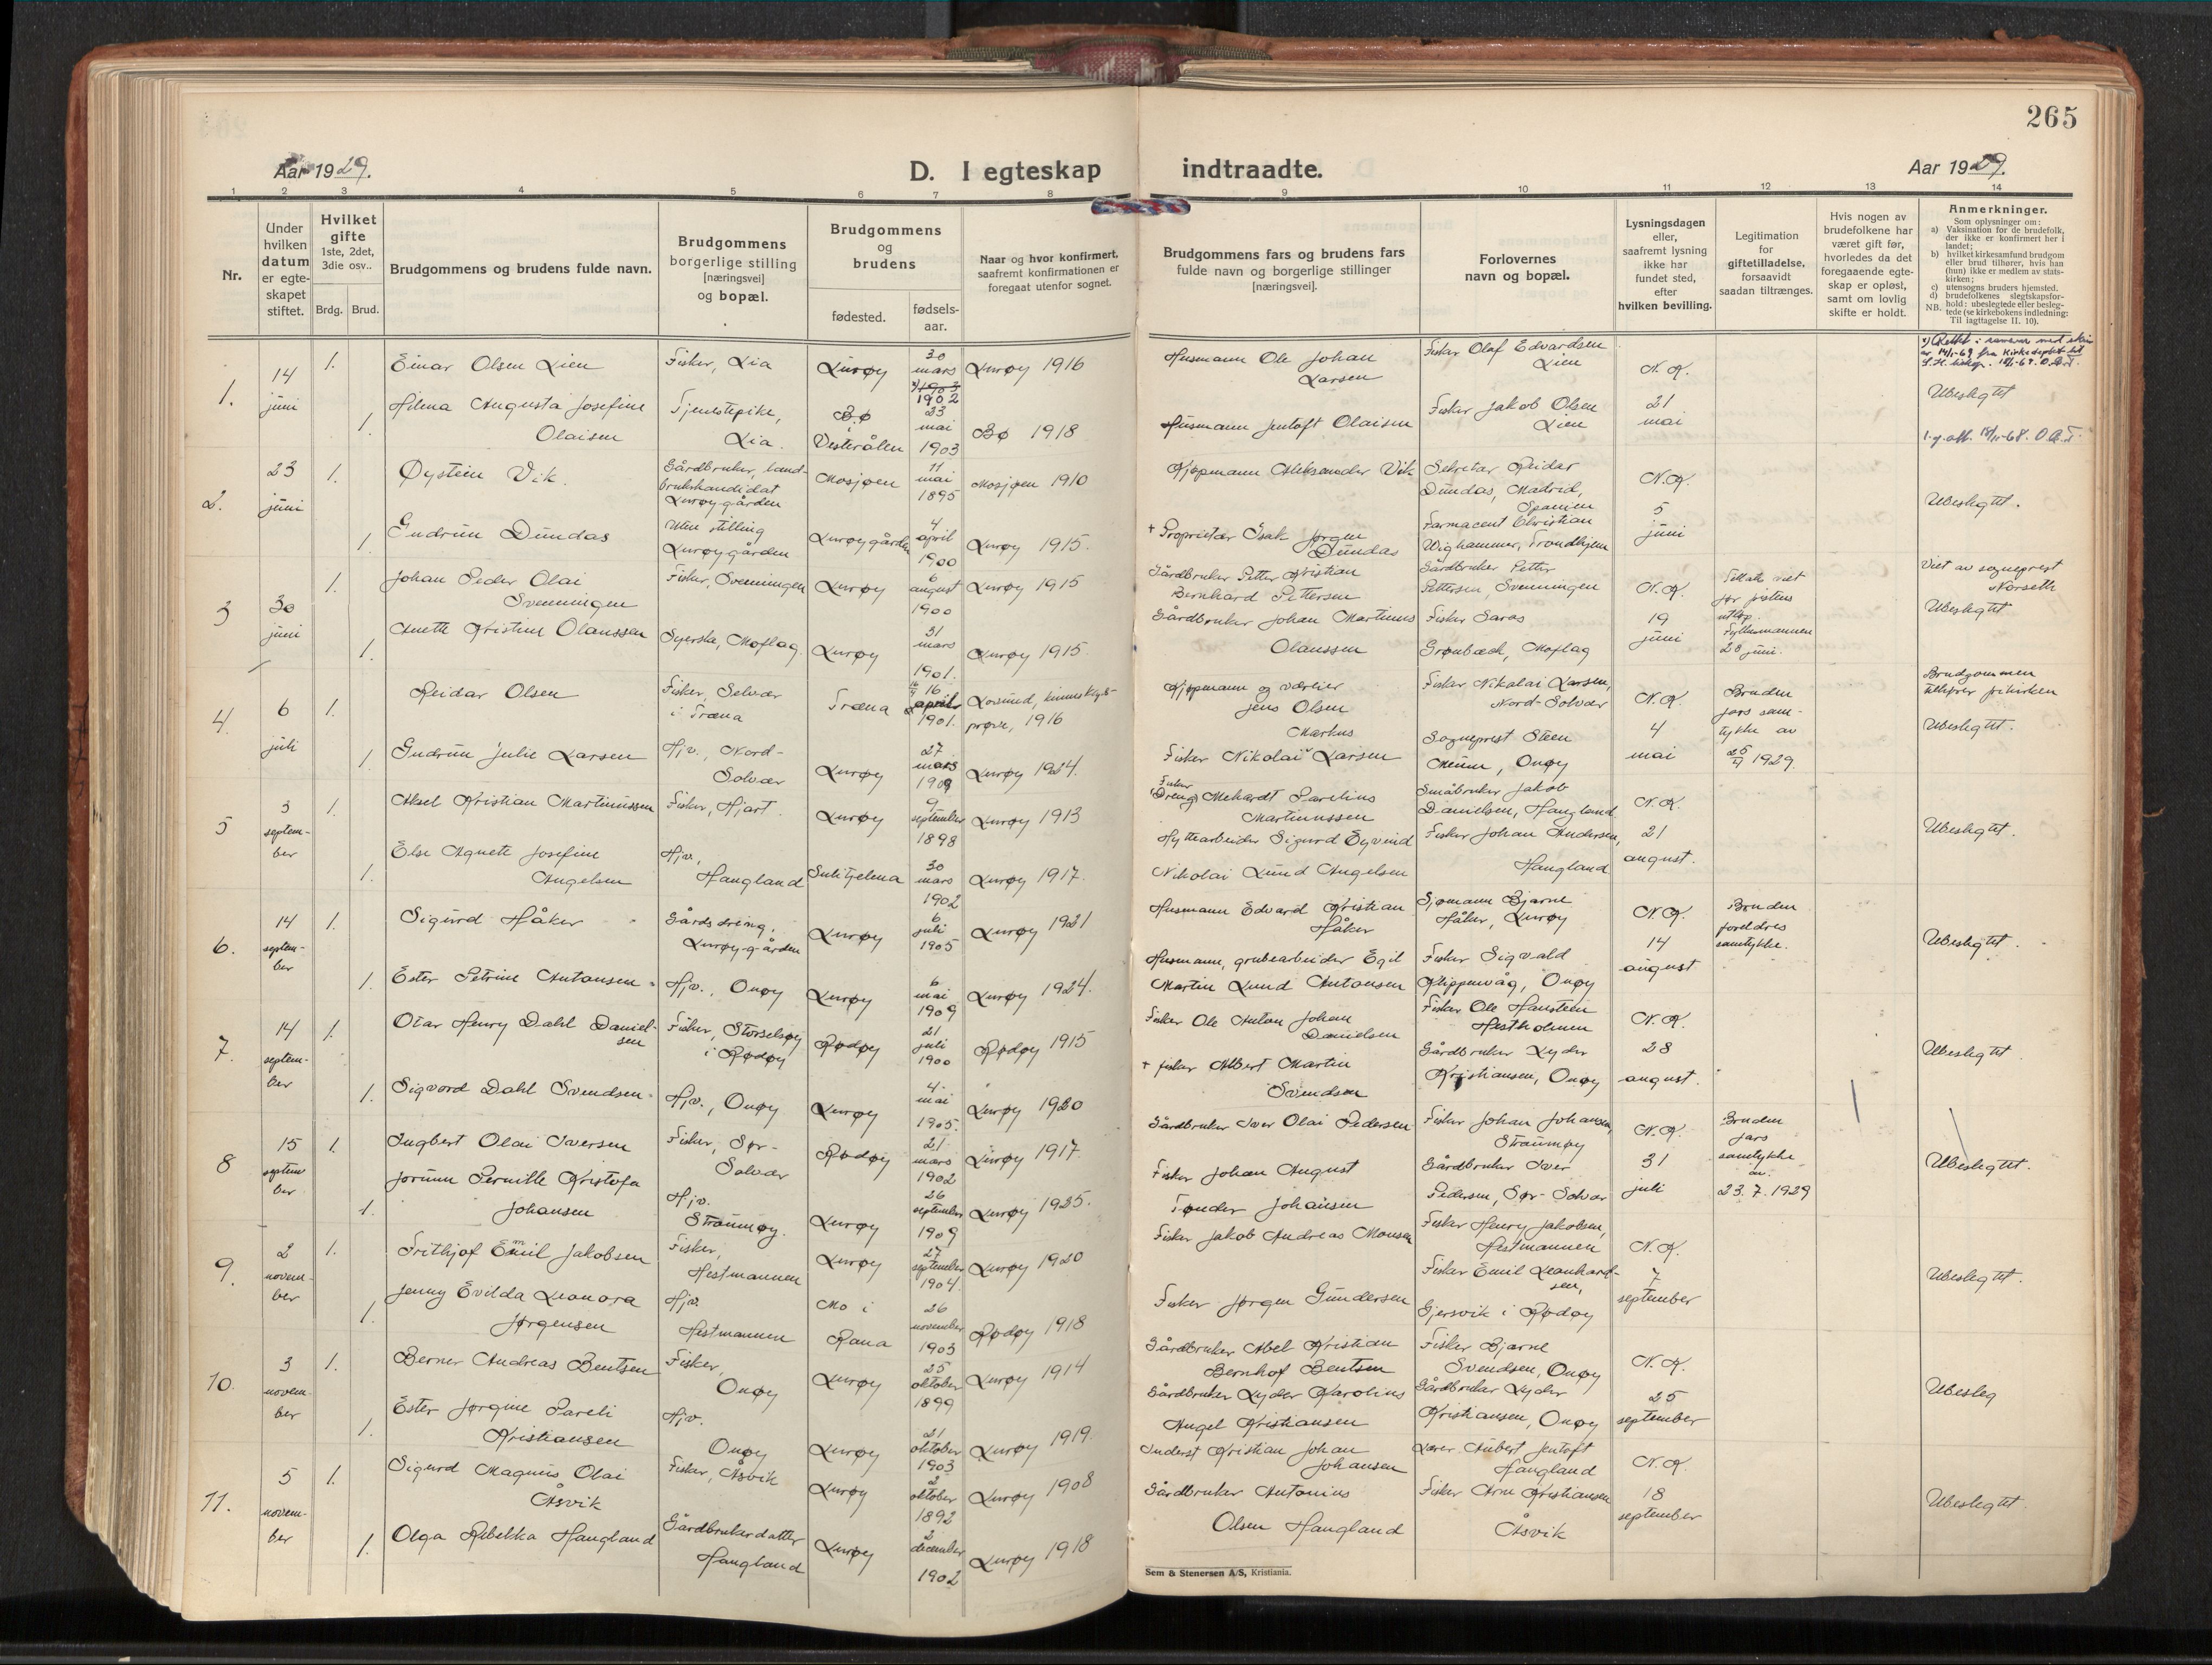 265
Aar 1929.
D. I egteskap indtraadte.
Aar 1929.
1 2 3 4 5 6 7 8 9 10 11 12 13 14
Nr.
Under hvilken datum er egte-skapet stiftet.
Hvilket gifte 1ste, 2det, 3die osv..
Brdg. Brud.
Brudgommens og brudens fulde navn.
Brudgommens borgerlige stilling [næringsvei] og bopæl.
Brudgommens og brudens
fødested.
fødsels-aar.
Naar og hvor konfirmert, saafremt konfirmationen er foregaat utenfor sognet.
Brudgommens fars og brudens fars fulde navn og borgerlige stillinger [næringsvei].
Forlovernes navn og bopæl.
Lysningsdagen eller, saafremt lysning ikke har fundet sted, efter hvilken bevilling.
Legitimation for giftetilladelse, forsaavidt saadan tiltrænges.
Hvis nogen av brudefolkene har været gift før, hvorledes da det foregaaende egte-skap er opløst, samt om lovlig skifte er holdt.
Anmerkninger.
Som oplysninger om:
a) Vaksination for de brudefolk, der ikke er konfirmert her i landet;
b) hvilket kirkesamfund brudgom eller brud tilhører, hvis han (hun) ikke er medlem av stats-kirken;
c) utensogns bruders hjemsted.
d) brudefolkenes slegtskapsfor-hold: ubeslegtede eller besleg-tede (se kirkebokens indledning:
NB. Til iagttagelse II. 10).
1. 14 juni
1. Einar Olsen Lien
Fisker, Lia
Lurøy
30 mars 1903 1902
Lurøy 1916
Husmann Ole Johan Larsen
Fisker Olaf Edvardsen Lien
N.K. 21 mai
Ubeslegtet
1. Helena Augusta Josefine Olaisen
Tjenestepike, Lia.
Bø i Vesterålen
23 mai 1903
Bø 1918
Husmann Jentoft Olaisen
Fisker Jakob Olsen Lien
2. 23 juni
1. Øystein Vik.
Gårdbruker, land-brukskandidat Lurøygården
Mosjøen
11 mai 1895
Mosjøen 1910
Kjøpmann Aleksander Vik
Sekretær Reidar Dundas, Madrid, Spanien
N.K. 5 juni
Ubeslegtet.
1. Gudrun Dundas
Uten stilling Lurøygården
Lurøygården
4 april 1900
Lurøy 1915.
+ Proprietær Isak Jørgen Dundas
Farmaceut Christian Wighammer, Trondhjem
3 30 juni
1. Johan Peder Olai Svenningen
Fisker, Svenningen
Lurøy
6 august 1900
Lurøy 1915
Gårdbruker Petter Kristian Bernhard Pettersen
Gårdbruker Petter Pettersen, Svenningen
N.K. 19 juni
Fylkesmannen 28 juni.
Viet av sogneprest Norseth
Ubeslegtet
1. Anette Kristine Olaussen
Syerske, Moflag.
Lurøy
31 mars 1901.
Lurøy 1915.
Gårdbruker Johan Martinus Olaussen
Fisker Saras Grønbæck, Moflag
4. 6 juli
1. Reidar Olsen
Fisker, Selvær i Træna
Træna
16 april 1901.
Lovund, 1916
Kjøpmann og værier Jens Olsen Markus
Fisker Nikolai Larsen, Nord-Solvær
N.K. 4 mai
Bruden fars sam-tykke av 25/4 1929.
Brudgommen tilhører frikirken
Ubeslegtet.
1 Gudrun Julie Larsen
Hjv., Nord-Solvær
Lurøy
27 mars 1909
Lurøy 1924.
Fisker Nikolai Larsen
Sogneprest Steen, Onøy
5 3 septem-ber
1. Aksel Kristian Martinussen
Fisker, Hjart.
Lurøy
9 september 1898
Lurøy 1913
Fisker (Dreng) Mehardt Parelius Martinussen
Småbruker Jakob Danielsen, Haugland
N.K. 21 august.
Ubeslegtet.
1. Else Agnete Josefine Angelsen
Hjv., Haugland
Sulitjelma
30 mars 1902
Lurøy 1917.
Hyttearbeider Sigurd Eyvind Nikolai Lund Angelsen
Fisker Johan Andersen, Haugland
6. 14 septem-ber
1. Sigurd Håker
Gårdsdreng, Lurøy-gården
Lurøy
6 juli 1905
Lurøy 1921
Husmann Edvard Kristian Håker
Sjømann Bjarne Håker, Lurøy
N.K. 14 august
Bruden foreldres samtykke.
Ubeslegtet.
1. Ester Petrine Antonsen
Hjv., Onøy
Lurøy
6 mai 1909
Lurøy 1924.
Husmann, grubearbeider Egil Martin Lund Antonsen
Fisker Sigvald Klippenvåg, Onøy
7. 14 septem-ber
1. Otar Henry Dahl Daniel-sen
Fisker, Storselsøy i Rødøy
Rødøy
21 juli 1900
Rødøy 1915
Fisker Ole Anton Johan Danielsen
Fisker Ole Haustein Hestholmen
N.K. 28 august.
Ubeslegtet
1. Sigvord Dahl Svendsen
Hjv., Onøy
Lurøy
4 mai 1905.
Lurøy 1920
+ fisker Albert Martin Svendsen
Gårdbruker Lyder Kristiansen, Onøy
8 15 septem ber
1. Ingbert Olai Iversen
Fisker, Sør-Solvær
Rødøy
21 mars 1902
Lurøy 1917.
Gårdbruker Iver Olai Pedersen
Fisker Johan Johansen, Straumøy
N.K. 31 juli
Bruden fars samtykke av 23.7.1929
Ubeslegtet.
1. Jorunn Pernille Kristofa Johansen
Hjv. Straumøy.
Lurøy
26 september 1909
Lurøy 1925.
Fisker Johan August Tønder Johansen
Gårdbruker Iver Pedersen, Sør-Solvær
9. 2 novem-ber
1. Frithjof Emil Jakobsen
Fisker, Hestmannen
Lurøy
27 september 1904.
Lurøy 1920
Fisker Jakob Andreas Monsen
Fisker Henry Jakobsen, Hestmannen
N.K. 7 september
Ubeslegtet.
1. Jenny Evilda Leonora Jørgensen
Hjv. Hestmannen
Mo i Rana
26 november 1903
Rødøy 1918
Fisker Jørgen Gundersen
Fisker Emil Leonhard-sen, Gjersvik i Rødøy
10. 3 novem-ber
1. Berner Andreas Bentsen
Fisker, Onøy
Lurøy
25 oktober 1899
Lurøy 1914
Gårdbruker Abel Kristian Bernhof Bentsen
Fisker Bjarne Svendsen, Onøy
N.K. 25 september
Ubesleg
1. Ester Jørgine Pareli Kristiansen
Hjv. Onøy
Lurøy
21 oktober 1903
Lurøy 1919.
Gårdbruker Lyder Karolius Angel Kristiansen
Gårdbruker Lyder Kristiansen, Onøy
11. 5 novem-ber
1. Sigurd Magnus Olai Åsvik
Fisker, Åsvik
Lurøy
2 oktober 1892
Lurøy 1908
Inderst Kristian Johan Johansen
Lærer Hubert Jentoft Haugland
N.K. 18 september
Ubeslegtet.
1. Olga Rebekka Haugland
Gårdbrukerdatter Haugland
Lurøy
2 december 1902
Lurøy 1918
Gårdbruker Antonius Olsen Haugland
Fisker Arne Kristiansen Åsvik
Sem & Stenersen A/S, Kristiania.